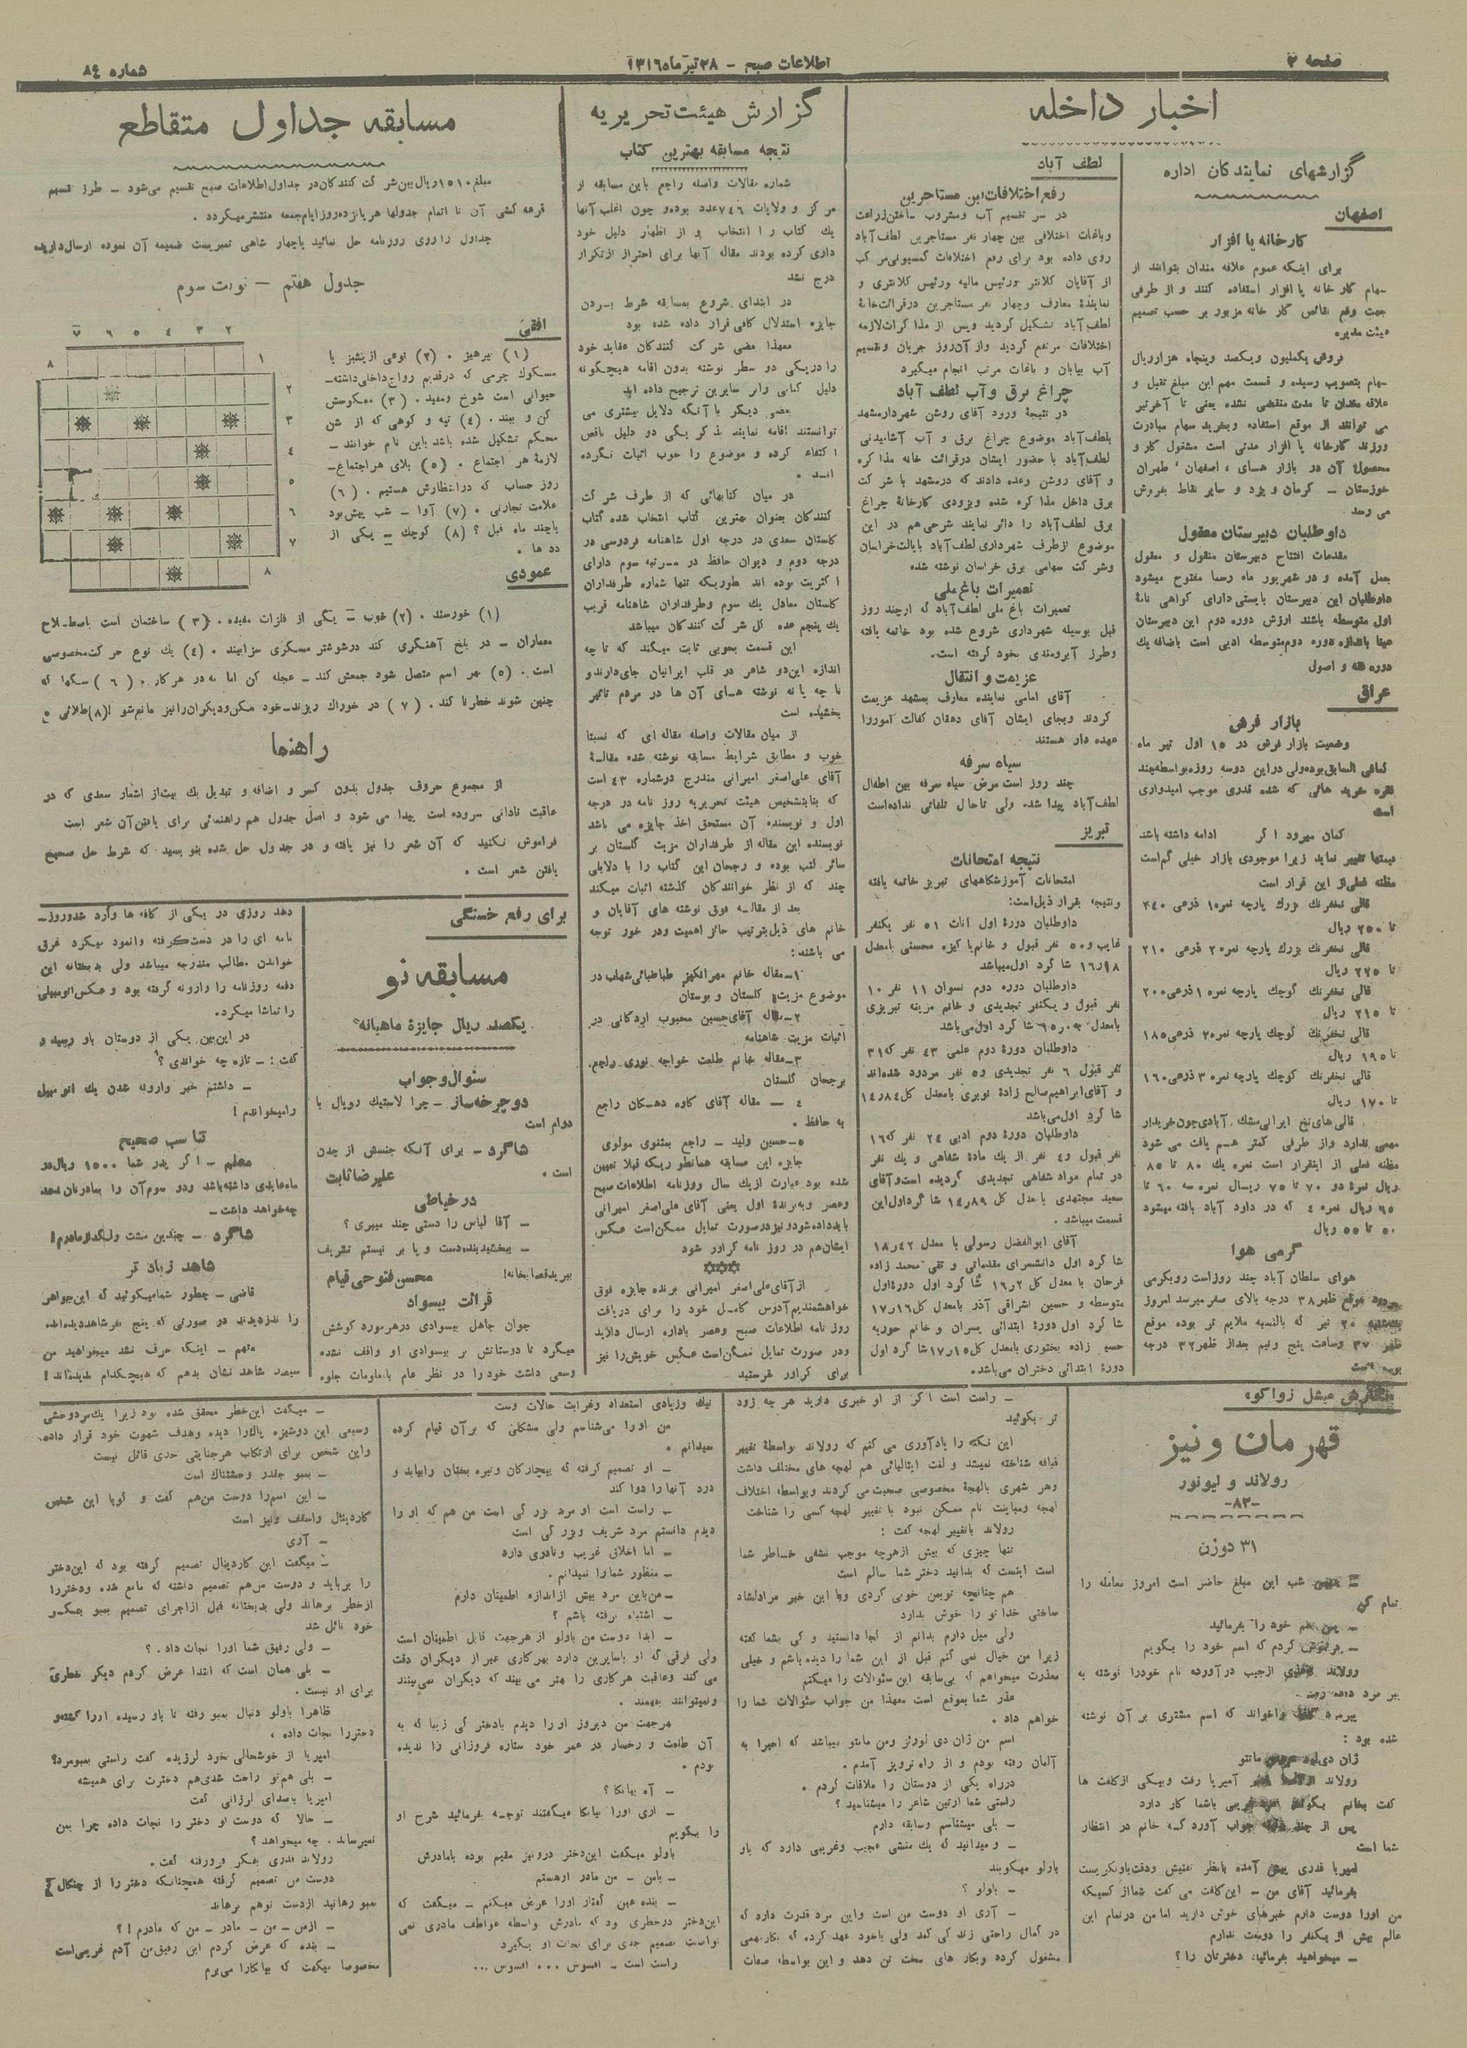 صفحه ۲
اطلاعات صبح - ۲۸ تیر ماه ۱۳۱۶
شماره ۸۴
اخبار داخله
گزارشهای نمایندگان اداره
اصفهان
کارخانه پا افزار
برای اینکه عموم علاقه مندان بتوانند از
سهام کارخانه پا افزار استفاده کنند و از طرفی
جهت رفع نقائص کارخانه مزبور بر حسب تصمیم
هیئت مدیره
فروش یکملیون و یکصد و پنجاه هزار ریال
سهام بتصویب رسیده و قسمت مهم این مبلغ تقبل و
علاقه مندان تا مدت منقضی نشده یعنی تا آخر تیر
می توانند از موقع استفاده و بخرید سهام مبادرت
ورزند کارخانه پا افزار مدتی است مشغول کار و
محصول آن در بازار های اصفهان ، طهران
خوزستان - کرمان و یزد و سایر نقاط بفروش
می رسد
داوطلبان دبیرستان معقول
مقدمات افتتاح دبیرستان منقول و معقول
بعمل آمده و در شهریور ماه رسما مفتوح میشود
داوطلبان این دبیرستان بایستی دارای گواهی نامهٔ
اول متوسطه باشند ارزش دوره دوم این دبیرستان
عینا باندازه دوره دوم متوسطه ادبی است باضافه یک
دوره فقه و اصول
عراق
بازار فرش
وضعیت بازار فرش در ۱۵ اول تیر ماه
کمافی السابق بوده ولی در این دوسه روزه بواسطه چند
فقره خرید هائی که شده قدری موجب امیدواری
است
گمان میرود اگر ادامه داشته باشد
قیمتها تغییر نماید زیرا موجودی بازار خیلی کم است
مظنه فعلی از این قرار است
قالی نخفرنک بزرک پارچه نمره ۱ ذرعی ۲۴۰
تا ۲۵۰ ریال
قالی نخفرنک بزرک پارچه نمره ۲ ذرعی ۲۱۰
تا ۲۲۵ ریال
قالی نخفرنک کوچک پارچه نمره ۱ ذرعی ۲۰۰
تا ۲۱۵ ریال
قالی نخفرنک کوچک پارچه نمره ۲ ذرعی ۱۸۵
تا ۱۹۵ ریال
قالی نخفرنک کوچک پارچه نمره ۳ ذرعی ۱۶۰
تا ۱۷۰ ریال
قالی های نخ ایرانی مشک آبادی چون خریدار
مهمی ندارد و از طرفی کمتر هم یافت می شود
مظنه فعلی از اینقرار است نمره یک ۸۰ تا ۸۵
ریال نمره دو ۷۰ تا ۷۵ ریال نمره سه ۶۰ تا
۶۵ ریال نمره ۴ که در داود آباد بافته میشود
۵۰ تا ۵۵ ریال
گرمی هوا
هوای سلطان آباد چند روز است رو بگرمی
موقع ظهر ۳۸ درجه بالای صفر میرسد امروز
یکشنبه ۲۰ تیر که بالنسبه ملایم تر بوده موقع
ظهر ۳۷ و ساعت پنج و نیم بعد از ظهر ۳۲ درجه
بوده است
لطف آباد
رفع اختلافات بین مستاجرین
در سر تقسیم آب و مشروب ساختن زراعت
و باغات اختلافی بین چهار نفر مستاجرین لطف آباد
روی داده بود برای رفع اختلافات کمسیونی مرکب
از آقایان کلانتر و رئیس مالیه و رئیس کلانتری و
نمایندهٔ معارف و چهار نفر مستاجرین در قرائت خانهٔ
لطف آباد تشکیل گردید و پس از مذاکرات لازمه
اختلافات مرتفع گردید و از آن روز جریان و تقسیم
آب بیابان و باغات مرتب انجام میگیرد
چراغ برق و آب لطف آباد
در نتیجهٔ ورود آقای روشن شهردار مشهد
بلطف آباد موضوع چراغ برق و آب آشامیدنی
لطف آباد با حضور ایشان در قرائت خانه مذاکره
و آقای روشن وعده دادند که در مشهد با شرکت
برق داخل مذاکره شده و بزودی کارخانهٔ چراغ
برق لطف آباد را دائر نمایند شرحی هم در این
موضوع از طرف شهرداری لطف آباد بایالت خراسان
و شرکت سهامی برق خراسان نوشته شده
تعمیرات باغ ملی
تعمیرات باغ ملی لطف آباد که از چند روز
قبل بوسیله شهرداری شروع شده بود خاتمه یافته
و طرز آبرومندی بخود گرفته است.
عزیمت و انتقال
آقای امامی نماینده معارف بمشهد عزیمت
کردند و بجای ایشان آقای دهقان کفالت امور را
عهده دار هستند
سیاه سرفه
چند روز است مرض سیاه سرفه بین اطفال
لطف آباد پیدا شده ولی تا حال تلفاتی نداده است
تبریز
نتیجه امتحانات
امتحانات آموزشگاههای تبریز خاتمه یافته
و نتیجه بقرار ذیل است:
داوطلبان دورهٔ اول اناث ۵۱ نفر یکنفر
غایب و ۵۰ نفر قبول و خانم پاکیزه محسنی بامعدل
۱۶ر۱۸ شاگرد اول میباشد
داوطلبان دوره دوم نسوان ۱۱ نفر ۱۰
نفر قبول و یکنفر تجدیدی و خانم مزینه تبریزی
شاگرد اول می باشد
داوطلبان دورهٔ دوم علمی ۴۳ نفر که ۳۱
نفر قبول ۶ نفر تجدیدی و ۵ نفر مردود شده اند
و آقای ابراهیم صالح زادهٔ نوبری بامعدل کل ۱۴ر۸۴
شاگرد اول می باشد
داوطلبان دورهٔ دوم ادبی ۲۴ نفر که ۱۶
نفر قبول و ۴ نفر از یک مادهٔ شفاهی و یک نفر
در تمام مواد شفاهی تجدیدی گردیده است و آقای
سعید مجتهدی بامعدل کل ۱۴ر۸۹ شاگرد اول این
قسمت میباشد .
آقای ابوالفضل رسولی با معدل ۱۸ر۴۲
شاگرد اول دانشسرای مقدماتی و تقی محمد زاده
فرحان با معدل کل ۱۶ر۲ شاگرد اول دورهٔ اول
متوسطه و حسین اشراقی آذر بامعدل کل ۱۷ر۱۶
شاگرد اول دورهٔ ابتدائی پسران و خانم حوریه
حسین زاده بختوری بامعدل کل ۱۷ر۱۵ شاگرد اول
دورهٔ ابتدائی دختران می باشد.
گزارش هیئت تحریریه
نتیجه مسابقه بهترین کتاب
شماره مقالات واصله راجع باین مسابقه از
مرکز و ولایات ۷۴۶ عدد بوده و چون اغلب آنها
یک کتاب را انتخاب و از اظهار دلیل خود
داری کرده بودند مقاله آنها برای احتراز از تکرار
درج نشد
در ابتدای شروع بمسابقه شرط بردن
جایزه استدلال کافی قرار داده شده بود
معهذا بعضی شرکت کنندگان عقاید خود
را در یکی دو سطر نوشته بدون اقامه هیچگونه
دلیل کتابی را بر سایرین ترجیح داده اند
بعضی دیگر با آنکه دلایل بیشتری می
توانستند اقامه نمایند بذکر یکی دو دلیل ناقص
اکتفاء کرده و موضوع را خوب اثبات نکرده
اند .
در میان کتابهائی که از طرف شرکت
کنندگان بعنوان بهترین کتاب انتخاب شده کتاب
گلستان سعدی در درجه اول شاهنامه فردوسی در
درجه دوم و دیوان حافظ در مرتبه سوم دارای
اکثریت بوده اند بطوریکه تنها شماره طرفداران
گلستان معادل یک سوم و طرفداران شاهنامه قریب
یک پنجم عده کل شرکت کنندگان میباشد
این قسمت بخوبی ثابت میکند که تا چه
اندازه این دو شاعر در قلب ایرانیان جای دارند و
تا چه پایه نوشته های آن ها در مردم تاثیر
بخشیده است
از میان مقالات واصله مقاله ای که نسبتا
خوب و مطابق شرایط مسابقه نوشته شده مقالهٔ
آقای علی اصغر امیرانی مندرج در شماره ۴۳ است
که بنا بتشخیص هیئت تحریریه روز نامه در درجه
اول و نویسنده آن مستحق اخذ جایزه می باشد
نویسنده این مقاله از طرفداران مزیت گلستان بر
سائر کتب بوده و رجحان این کتاب را با دلایلی
چند که از نظر خوانندگان گذشته اثبات میکند
بعد از مقاله فوق نوشته های آقایان و
خانم های ذیل بترتیب حائز اهمیت و در خور توجه
می باشند:
۱- مقاله خانم مهرانگیز طباطبائی شهاب در
موضوع مزیت گلستان و بوستان
۲- مقاله آقای حسین محبوب اردکانی در
اثبات مزیت شاهنامه
۳- مقاله خانم طلعت خواجه نوری راجع
برجحان گلستان
۴ - مقاله آقای کاوه دهکان راجع
به حافظ .
۵- حسین ولید - راجع بمثنوی مولوی
جایزه این مسابقه همانطوریکه قبلا تعیین
شده بود عبارت از یک سال روزنامه اطلاعات صبح
و عصر و به برندهٔ اول یعنی آقای علی اصغر امیرانی
باید داده شود و نیز در صورت تمایل ممکن است عکس
ایشان هم در روز نامه گراور شود
از آقای علی اصغر امیرانی برنده جایزه فوق
خواهشمندیم آدرس کامل خود را برای دریافت
روز نامه اطلاعات صبح و عصر باداره ارسال دارند
و در صورت تمایل ممکن است عکس خویش را نیز
برای گراور بفرستید
مسابقه جداول متقاطع
مبلغ ۱۵۱۰ ریال بین شرکت کنندگان در جداول اطلاعات صبح تقسیم می شود - طرز تقسیم
قرعه کشی آن تا اتمام جدولها هر پانزده روز ایام جمعه منتشر میگردد .
جداول را روی روزنامه حل نمائید با چهار شاهی تمبر پست ضمیمه آن نموده ارسال دارید
جدول هفتم - نوبت سوم
۲ ۳ ۴ ۵ ۶ ۷
۸
۱
۲
۳
۴
۵
۶
۷
۸
افقی
(۱) پرهیز . (۲) نوعی از پنبز یا
مسکوک چرمی که در قدیم رواج داخلی داشته -
حیوانی است شوخ و مفید . (۳) معکوسش
کن و ببند . (۴) تپه و کوهی که از شن
محکم تشکیل شده باشد باین نام خوانند -
لازمهٔ هر اجتماع . (۵) بلای هر اجتماع -
روز حساب که در انتظارش هستیم . (۶)
علامت تجارتی . (۷) آوا - شب پیش بود
یا چند ماه قبل ؟ (۸) کوچک - یکی از
دد ها .
عمودی
(۱) خورسند . (۲) خوب - یکی از فلزات مفیده . (۳) ساختمان است باصطلاح
معماران - در بلخ آهنگری کند در شوشتر مسگری سزا بیند . (۴) یک نوع حرکت مخصوصی
است . (۵) بهر اسم متصل شود جمعش کند - عجله کن اما نه در هر کار . (۶) سگها که
چنین شوند خطرناکند . (۷) در خوراک ریزند - خود مکن و دیگران را نیز مانع شو (۸) طلائی
راهنما
از مجموع حروف جدول بدون کسر و اضافه و تبدیل یک بیت از اشعار سعدی که در
عاقبت نادانی سروده است پیدا می شود و اصل جدول هم راهنمائی برای یافتن آن شعر است
فراموش نکنید که آن شعر را نیز یافته و در جدول حل شده بنویسید که شرط حل صحیح
یافتن شعر است .
برای رفع خستگی
مسابقه نو
یکصد ریال جایزهٔ ماهیانه
سئوال و جواب
دوچرخه ساز - چرا لاستیک رویال با
دوام است
شاگرد - برای آنکه جنسش از چدن
است .
علیرضا ثابت
در خیاطی
- آقا لباس را دستی چند میبری ؟
- ببخشید بنده دست و پا بر نیستم تشریف
ببرید قصابخانه!
محسن فتوحی قیام
قرائت بیسواد
جوان جاهل بیسوادی در هر مورد کوشش
میکرد تا دوستانش بر بیسوادی او واقف نشده
وسعی داشت خود را در نظر عام با معلومات جلوه
دهد روزی در یکی از کافه ها وارد شد و روز-
نامه ای را در دست گرفته وانمود میکرد غرق
خواندن مطالب مندرجه میباشد ولی بدبختانه این
دفعه روزنامه را وارونه گرفته بود و عکس اتومبیلی
را تماشا میکرد.
در این بین یکی از دوستان باو رسیده و
گفت : - تازه چه خواندی ؟
- داشتم خبر وارونه شدن یک اتومبیل
را میخواندم !
تناسب صحیح
معلم - اگر پدر شما ۱۵۰۰ ریال در
ماه عایدی داشته باشد و دو سوم آن را بمادرتان دهد
چه خواهد داشت -
شاگرد - چندین مشت و لگد از مادرم !
شاهد زیاد تر
قاضی - چطور شما میگوئید که این جواهر
را ندزدیدند در صورتی که پنج نفر شاهد دیده اند
متهم - اینکه حرف نشد میخواهید من
سیصد شاهد نشان بدهم که هیچکدام ندیده اند !
نگارش میشل زواگو
قهرمان ونیز
رولاند و لیونور
-۸۳-
۳۱ دوزن
شب این مبلغ حاضر است امروز معامله را
تمام کن
خود را بفرمائید
کردم که اسم خود را بگویم
رولاند از جیب در آورده نام خود را نوشته به
پیر مرد داده
پیرمرد واخواند که اسم مشتری بر آن نوشته
شده بود :
ژان دی مانتو
رولاند آمپریا رفت و بیکی از کلفت ها
گفت بخانم باشما کار دارد
پس از چند جواب آورد که خانم در انتظار
شما است
امپریا قدری پیش آمده بانظر تفتیش ودقت باونگریست
بفرمائید آقای من - این کلفت می گفت شما از کسیکه
من او را دوست دارم خبرهای خوش دارید اما من در تمام این
عالم بیش از یکنفر را دوست ندارم
- میخواهید بفرمائید دخترتان را ؟
- راست است اگر از او خبری دارید هر چه زود
تر بگوئید
این نکته را یادآوری می کنم که رولاند بواسطهٔ تغییر
قیافه شناخته نمیشد و لغت ایتالیائی هم لهجه های مختلف داشت
و هر شهری بالهجهٔ مخصوصی صحبت می کردند و بواسطه اختلاف
لهجه و مباینت تام ممکن نبود با تغییر لهجه کسی را شناخت
رولاند باتغییر لهجه گفت :
تنها چیزی که بیش از هر چه موجب تشفی خاطر شما
است اینست که بدانید دختر شما سالم است
هم چنانچه تو بمن خوبی کردی و با این خبر مرا دلشاد
ساختی خدا تو را خوش بدارد
ولی میل دارم بدانم از کجا دانستید و کی بشما گفته
زیرا من خیال نمی کنم قبل از این شما را دیده باشم و خیلی
معذرت میخواهم که بی سابقه این سئوالات را میکنم
عذر شما بموقع است معهذا من جواب سئوالات شما را
خواهم داد .
اسم من ژان دی لورنز و من مانتو میباشد که اخیرا به
آلمان رفته بودم و از راه ترویز آمدم .
در راه یکی از دوستان را ملاقات کردم .
راستی شما ارتین شاعر را میشناسید ؟
- بلی میشناسم و سابقه دارم
- و میدانید که یک منشی عجیب و غریبی دارد که باو
پاولو میگویند
- پاولو ؟
- آری او دوست من است و این مرد قدرت دارد که
در کمال راحتی زندگی کند ولی باخود عهد کرده که بکار مهمی
مشغول گردد و بکار های سخت تن دهد و این بواسطه صفات
نیک و زیادی استعداد و غرابت حالات وست
من او را می شناسم ولی مشکلی که بر آن قیام کرده
نمیدانم .
- او تصمیم گرفته که بیچارگان و تیره بختان را بیابد و
درد آنها را دوا کند
- راست است او مرد بزرگی است من هم که او را
دیدم دانستم مرد شریف و بزرگی است
- اما اخلاق غریب و نادری دارد
- منظور شما را نمیدانم .
- من باین مرد بیش از اندازه اطمینان دارم
- اشتباه نرفته باشم ؟
- ابدا دوست من پاولو از هر جهت قابل اطمینان است
ولی فرقی که او باسایرین دارد بهر کاری غیر از دیگران دقت
می کند و عاقبت هر کاری را بهتر می بیند که دیگران نمی بینند
و نمیتوانند بفهمند .
بهر جهت من دیروز او را دیدم بادختر کی زیبا که به
آن طلعت و رخسار در عمر خود ستاره فروزانی را ندیده
بودم .
- آه بیانکا ؟
- آری او را بیانکا میگفتند توجه بفرمائید شرح او
را بگویم
پاولو میگفت این دختر در ونیز مقیم بوده بامادرش
- بامن - من مادر او هستم
- بنده عین گفتار او را عرض میکنم - میگفت که
این دختر در خطری بود که مادرش بواسطه عواطف مادری نمی
توانست تصمیم جدی برای نجات او بگیرد
راست است - افسوس ... افسوس ...
- میگفت این خطر محقق شده بود زیرا یک مرد وحشی
و سبعی این دوشیزه پاک را دیده و هدف شهوت خود قرار داده .
و این شخص برای ارتکاب هر جنایتی حدی قائل نیست
- بمبو چقدر وحشتناک است
- این اسم را دوست من هم گفت و گویا این شخص
کاردینال و اسقف ونیز است
- آری
- میگفت این کاردینال تصمیم گرفته بود که این دختر
را برباید و دوست من هم تصمیم داشته که مانع شده و دختر را
از خطر برهاند ولی بدبختانه قبل از اجرای تصمیم بمبو بمقصود
خود نائل شد
- ولی رفیق شما او را نجات داد . ؟
- بلی همان است که ابتدا عرض کردم دیگر خطری
برای او نیست .
ظاهرا پاولو دنبال بمبو رفته تا باو رسیده او را کشته و
دختر را نجات داده ،
امپریا از خوشحالی خود لرزیده گفت راستی بمبو مرد؟
- بلی هم تو راحت شدی هم دخترت برای همیشه
امپریا باصدای لرزانی گفت
- حالا که دوست او دختر را نجات داده چرا بمن
نمیرساند . چه میخواهد ؟
رولاند قدری بفکر فرو رفته گفت.
دوست من تصمیم گرفته همچنانکه دختر را از چنگال
بمبو رهانید از دست تو هم برهاند
- از من - من - مادر - من که مادرم !؟
- بنده که عرض کردم این رفیق من آدم غریبی است
مخصوصا میگفت که بیانکا را می برم